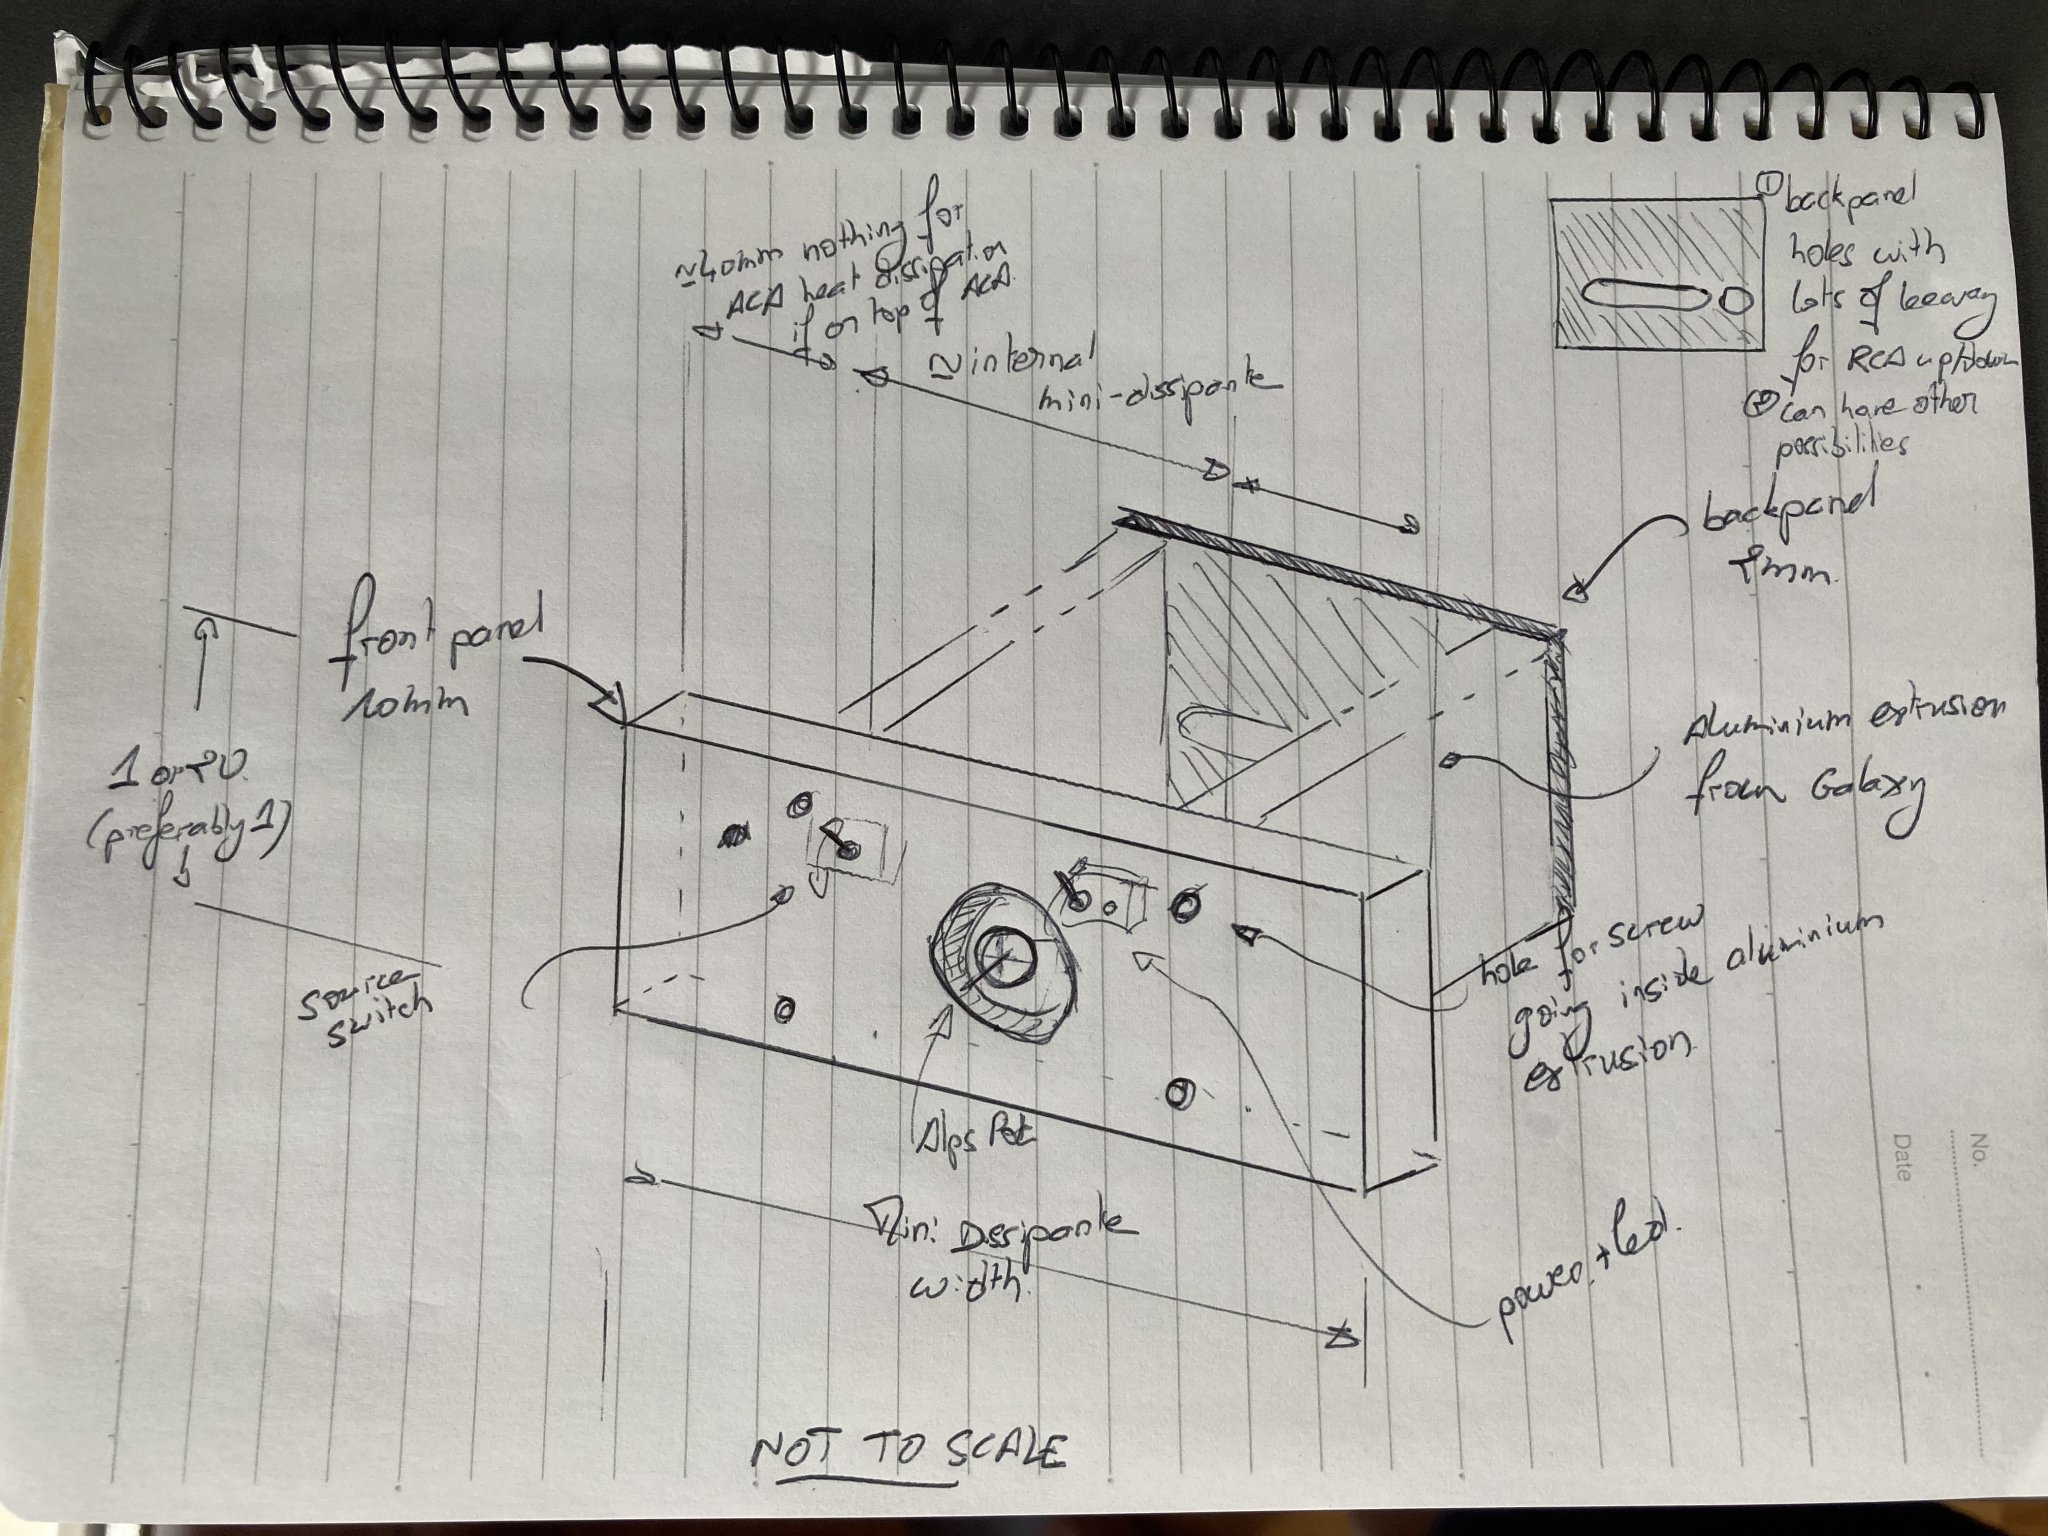 ≈40mm nothing for
ACA heat dissipation
if on top of ACA
≈ internal
mini-dissipante
① backpanel
holes with
lots of leeway
for RCA up/down
② can have other
possibilities
backpanel
2mm
front panel
10mm
1 or 2U
(preferably 1)
Aluminium extrusion
from Galaxy
source
switch
hole for screw
going inside aluminium
extrusion
Alps Pot
Mini Dissipante
width
power + led.
NOT TO SCALE
No.
Date